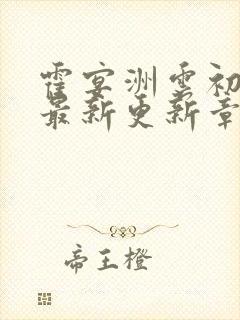 霍宴洲云初
最新更新章
帝王橙